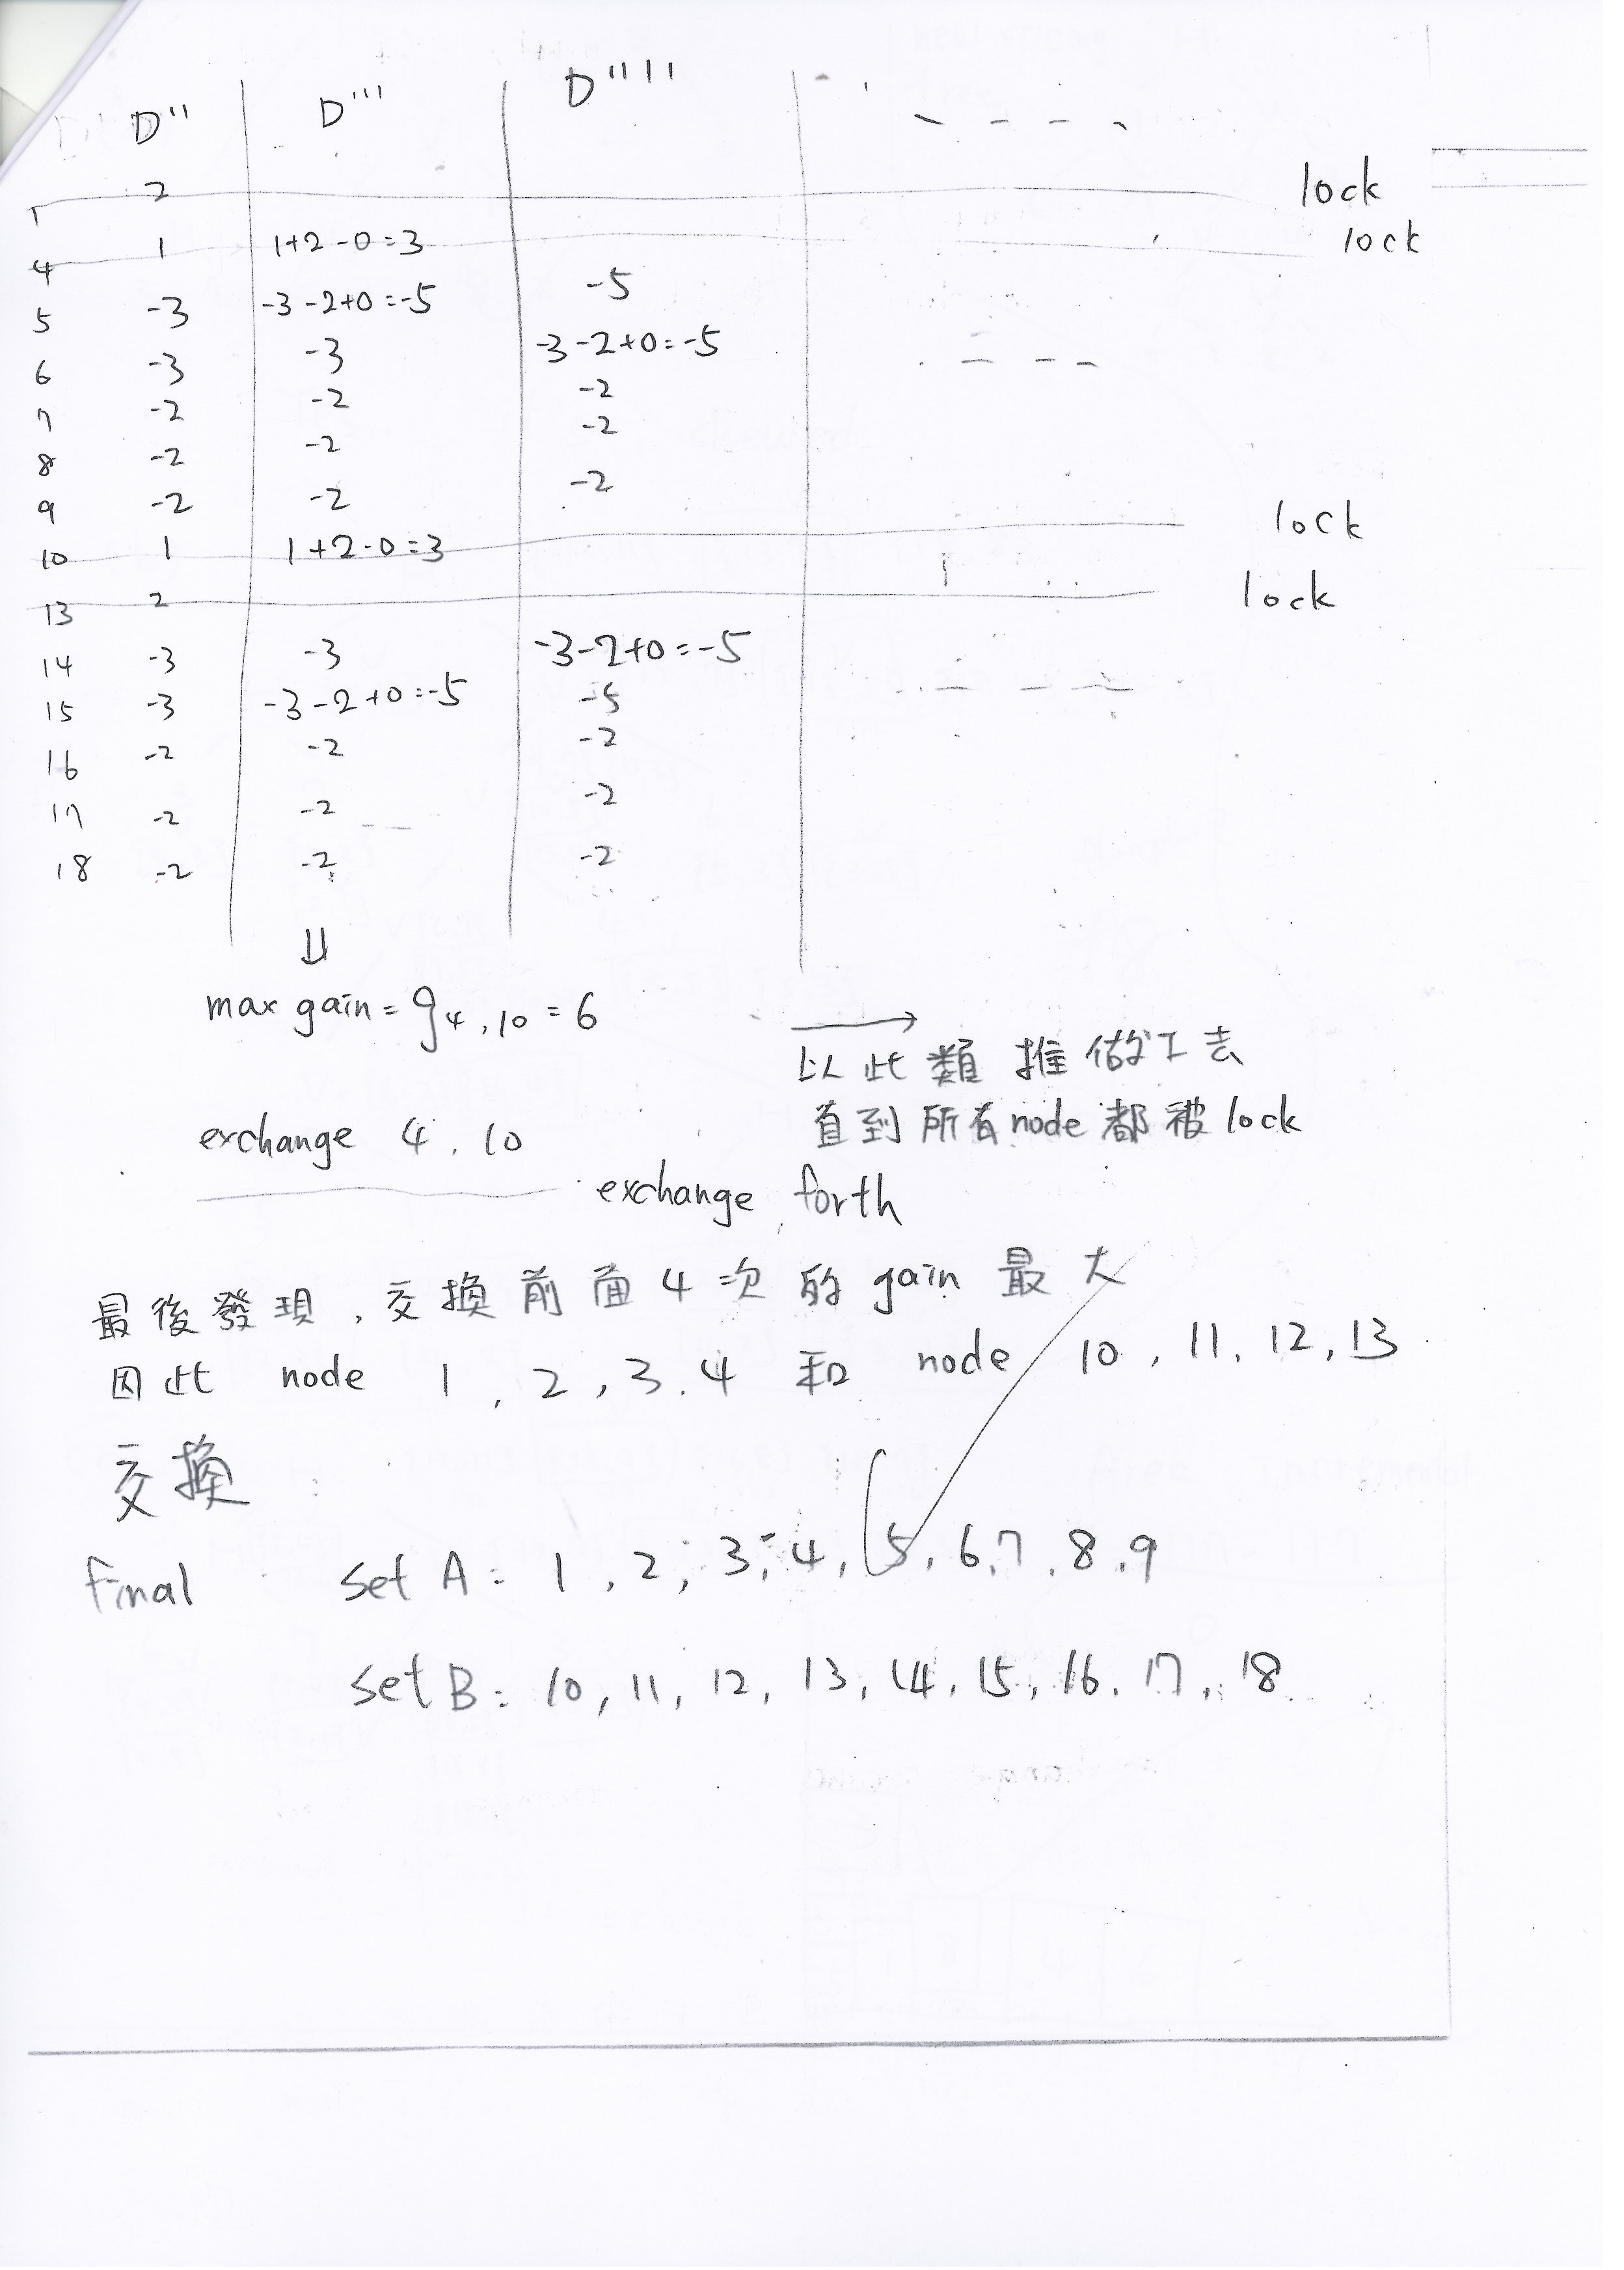 D'' D''' D'''' - - - -
1 2 lock
4 1 1+2-0=3 lock
5 -3 -3-2+0=-5 -5
6 -3 -3 -3-2+0=-5 - - -
7 -2 -2 -2
8 -2 -2 -2
9 -2 -2 -2
10 1 1+2-0=3 lock
13 2 lock
14 -3 -3 -3-2+0=-5
15 -3 -3-2+0=-5 -5 - - -
16 -2 -2 -2
17 -2 -2 -2
18 -2 -2 -2
⇓
max gain = g4,10 = 6
→
以此類推做下去
直到所有node都被lock
exchange 4, 10
exchange forth
最後發現,交換前面4次的gain最大
因此 node 1, 2, 3, 4 和 node 10, 11, 12, 13
交換
final set A: 1, 2, 3, 4, 5, 6, 7, 8, 9
set B: 10, 11, 12, 13, 14, 15, 16, 17, 18